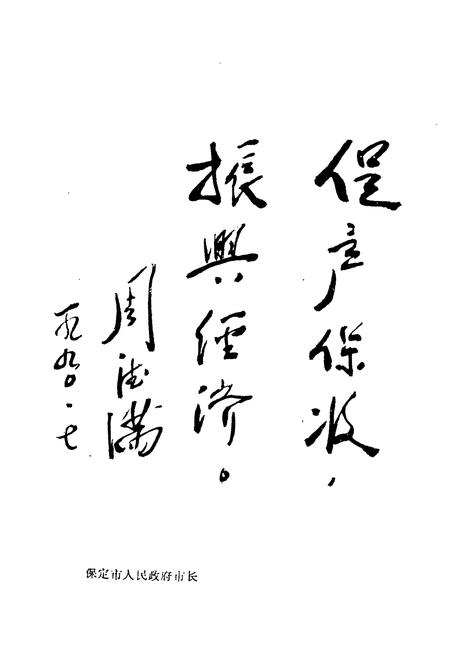 促产保收，
振興经济。
周德满
一九九〇.七
保定市人民政府市长